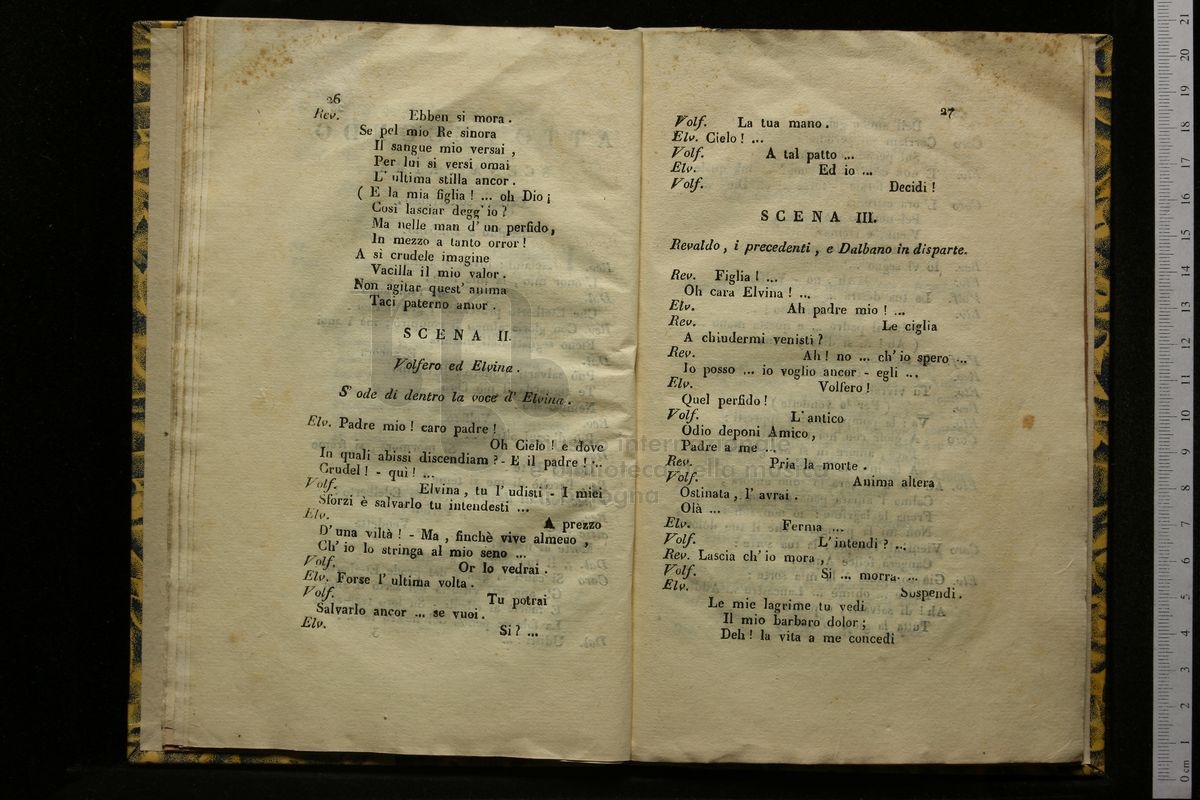 26
Rev. Ebben si mora.
Se pel mio Re sinora
Il sangue mio versai,
Per lui si versi omai
L' ultima stilla ancor.
( E la mia figlia! ... oh Dio¡
Così lasciar degg' io?
Ma nelle man d' un perfido,
In mezzo a tanto orror!
A sì crudele imagine
Vacilla il mio valor.
Non agitar quest' anima
Taci paterno amor.
SCENA II.
Volfero ed Elvina.
S' ode di dentro la voce d' Elvina.
Elv. Padre mio! caro padre!
Oh Cielo! e dove
In quali abissi discendiam? - E il padre! ...
Crudel! - qui! ...
Volf. Elvina, tu l' udisti - I miei
Sforzi è salvarlo tu intendesti ...
Elv. A prezzo
D'una viltà! - Ma, finchè vive almeuo,
Ch' io lo stringa al mio seno ...
Volf. Or lo vedrai.
Elv. Forse l' ultima volta.
Volf. Tu potrai
Salvarlo ancor ... se vuoi.
Elv. Si? ...
27
Volf. La tua mano.
Elv. Cielo! ...
Volf. A tal patto ...
Elv. Ed io ...
Volf. Decidi!
SCENA III.
Revaldo, i precedenti, e Dalbano in disparte.
Rev. Figlia! ...
Oh cara Elvina! ...
Elv. Ah padre mio! ...
Rev. Le ciglia
A chiudermi venisti?
Rev. Ah! no ... ch' io spero ...
Io posso ... io voglio ancor - egli ...
Elv. Volfero!
Quel perfido!
Volf. L' antico
Odio deponi Amico,
Padre a me ...
Rev. Pria la morte.
Volf. Anima altera
Ostinata, l' avrai.
Olà ...
Elv. Ferma ...
Volf. L' intendi? ...
Rev. Lascia ch' io mora,
Volf. Si ... morra ...
Elv. Suspendi.
Le mie lagrime tu vedi
Il mio barbaro dolor;
Deh! la vita a me concedi